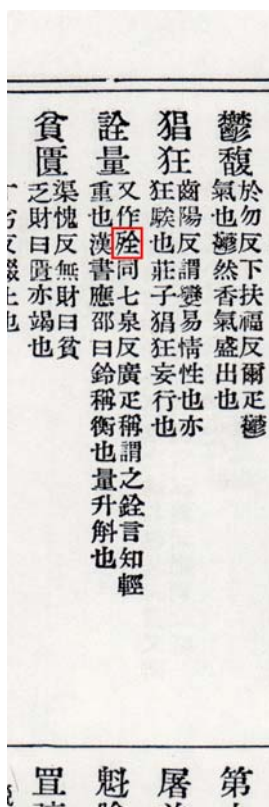 鬱馥
於勿反下扶福反爾疋鬱
氣也鬱然香氣盛出也
猖狂
齒陽反謂變易情性也亦
狂騃也莊子猖狂妄行也
詮量
又作同七泉反廣疋稱謂之銓言知輕
重也漢書應邵曰鈴稱衡也量升斛也
貧匱
渠愧反無財曰貧
乏財曰匱亦竭也
第
屠
魁